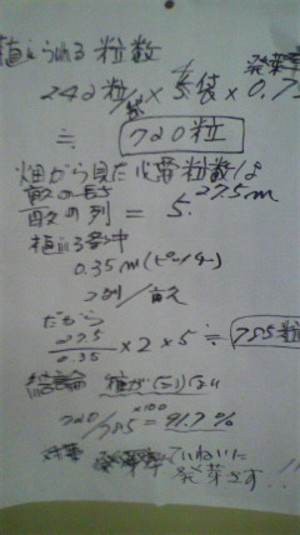 植えられる粒数
発芽率
242粒/袋×5袋×0.75
≒ 720粒
畑から見た必要粒数は
畝の長さ 27.5m
畝の列 = 5.
植える
0.35m
2列/畝
だから
27.5/0.35×2×5≒785粒
結論 種が足りない
720/785×100=91.7%
対策 ていねいに
発芽さす!!